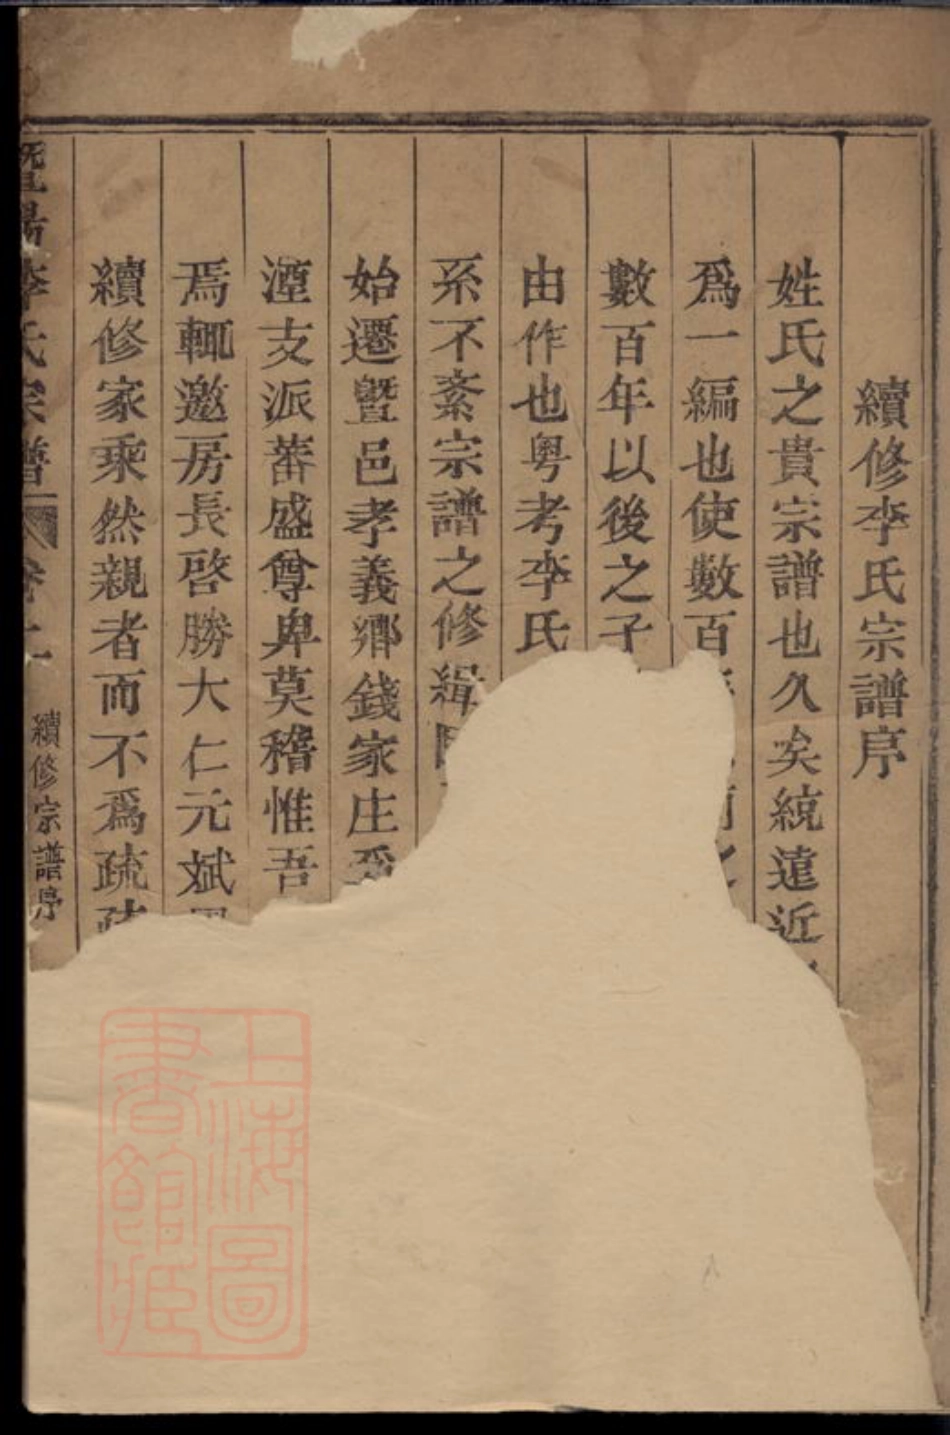 續修李氏宗譜序
姓氏之貴宗譜也久矣統遠近
爲一編也使數百
數百年以後之子
由作也粵考李氏
系不紊宗譜之修緝
始遷暨邑孝義鄉錢家庄
湮支派蕃盛尊卑莫稽惟吾
焉輒邀房長啓勝大仁元斌
續修家乘然親者而不爲疏
暨陽李氏宗譜
續修宗譜序
上海圖
書館藏